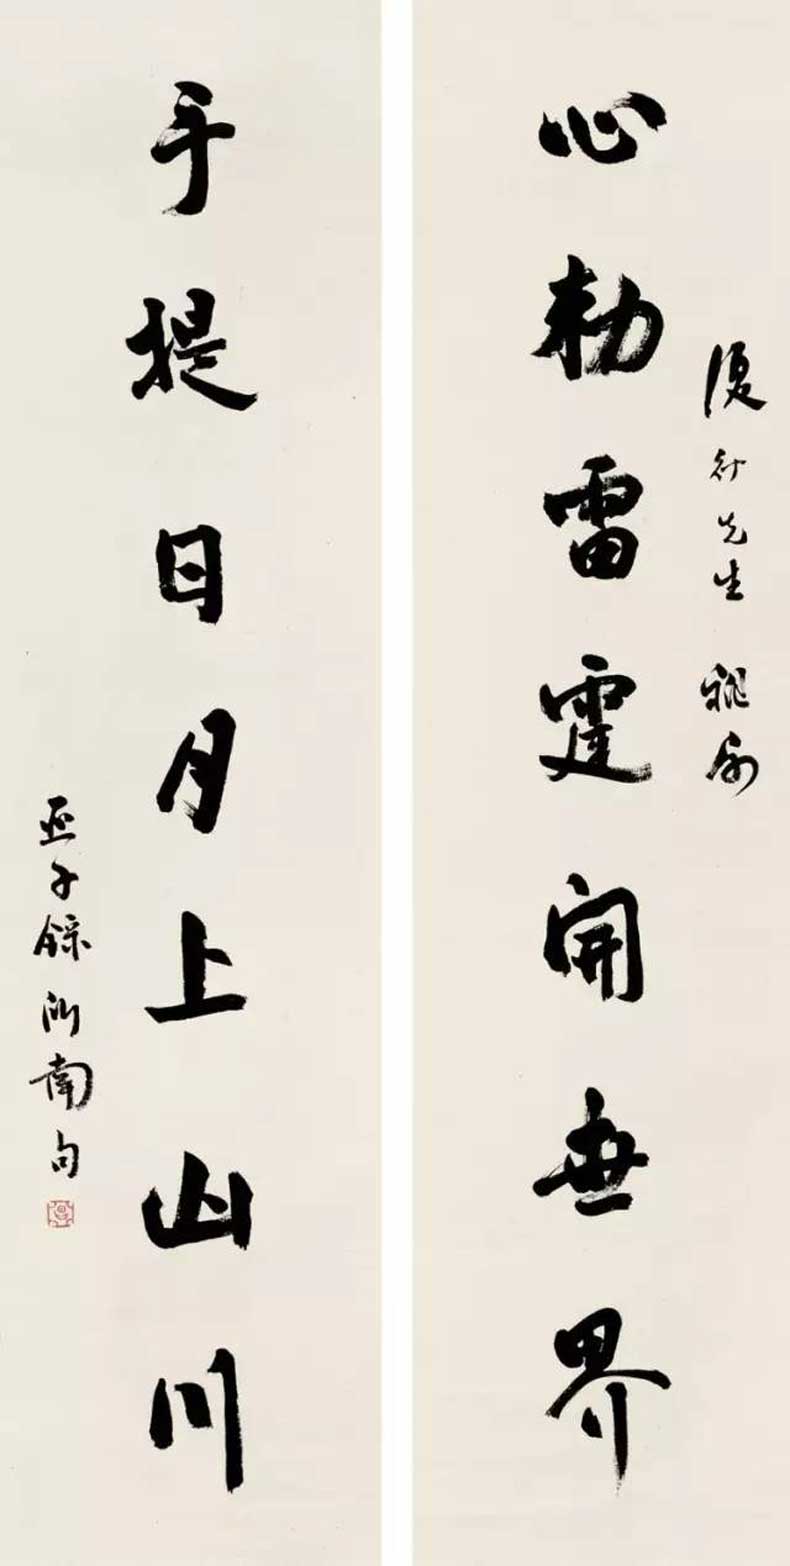 復初先生 雅屬
心勅雷霆開世界
手提日月上山川
亚子録所南句